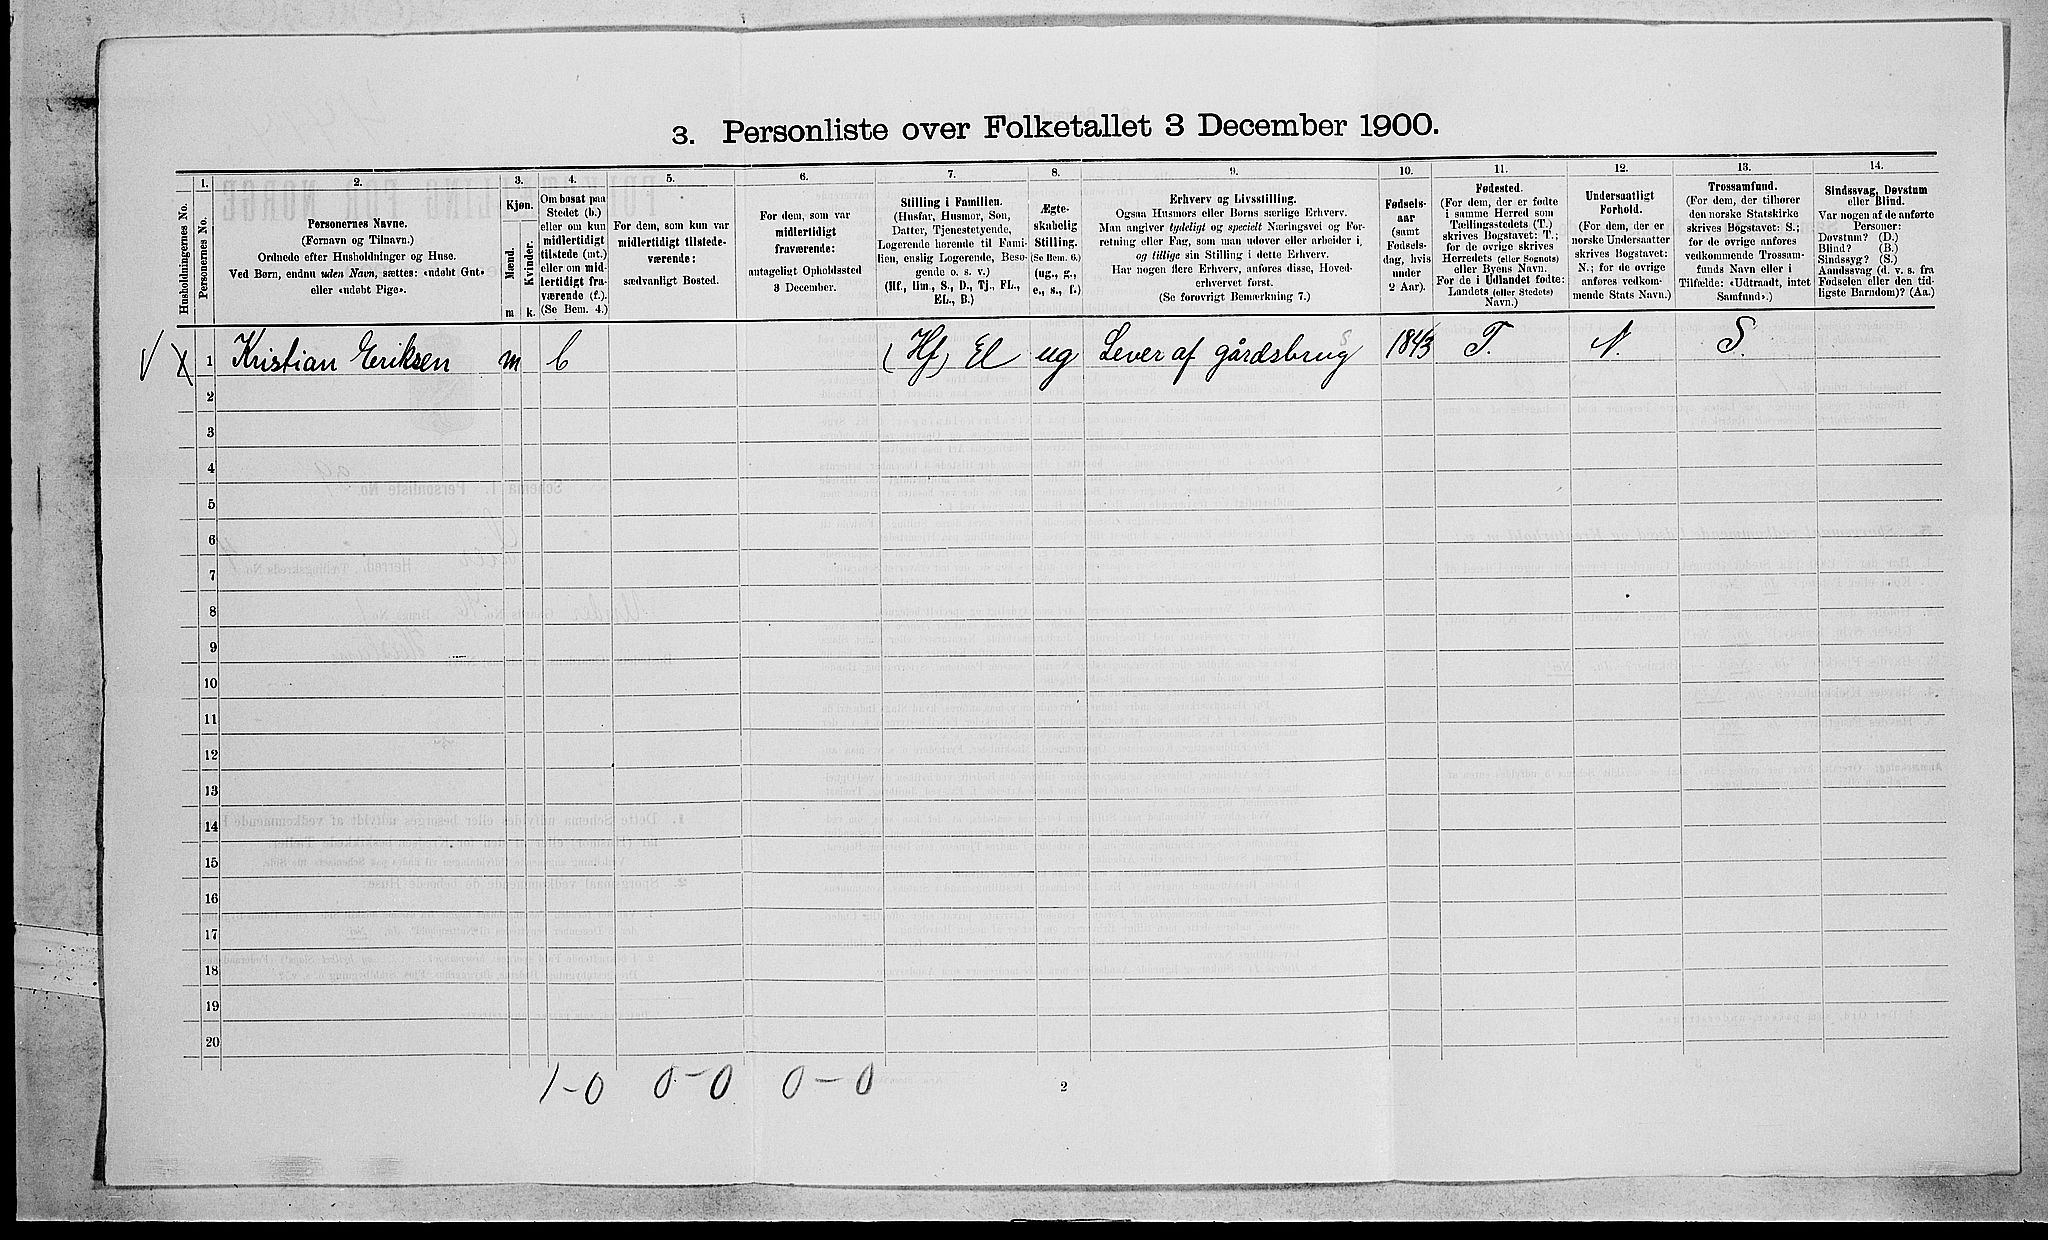 3. Personliste over Folketallet 3 December 1900.
Husholdningernes No.
1.
Personernes No.
2.
Personernes Navne.
(Fornavn og Tilnavn.)
Ordnede efter Husholdninger og Huse.
Ved Børn, endnu uden Navn, sættes: «udøbt Gut»
eller «udøbt Pige».
3.
Kjøn.
Mænd.
Kvinder.
m
k.
4.
Om bosat paa
Stedet (b.)
eller om kun
midlertidigt
tilstede (mt.)
eller om mid-
lertidigt fra-
værende (f.).
(Se Bem. 4.)
5.
For dem, som kun var
midlertidigt tilstede-
værende:
sædvanligt Bosted.
6.
For dem, som var
midlertidigt
fraværende:
antageligt Opholdssted
3 December.
7.
Stilling i Familien.
(Husfar, Husmor, Søn,
Datter, Tjenestetyende,
Logerende hørende til Fami-
lien, enslig Logerende, Besø-
gende o. s. v.)
(Hf., Hm., S., D., Tj., FL.,
EL., B.)
8.
Ægte-
skabelig
Stilling.
(Se Bem. 6.)
(ug., g.,
e., s., f.)
9.
Erhverv og Livsstilling.
Ogsaa Husmors eller Børns særlige Erhverv.
Man angiver tydeligt og specielt Næringsvei og For-
retning eller Fag, som man udøver eller arbeider i,
og tillige sin Stilling i dette Erhverv.
Har nogen flere Erhverv, anføres disse, Hoved-
erhvervet først.
(Se forøvrigt Bemærkning 7.)
10.
Fødsels-
aar
(samt
Fødsels-
dag, hvis
under
2 Aar).
11.
Fødested.
(For dem, der er fødte
i samme Herred som
Tællingsstedets (T.)
skrives Bogstavet: T.;
for de øvrige skrives
Herredets (eller Sognets)
eller Byens Navn.
For de i Udlandet fødte:
Landets (eller Stedets)
Navn.)
12.
Undersaatligt
Forhold.
(For dem, der er
norske Undersaatter
skrives Bogstavet:
N.; for de øvrige
anføres vedkom-
mende Stats Navn.)
13.
Trossamfund.
(For dem, der tilhører
den norske Statskirke
skrives Bogstavet: S.;
for de øvrige anføres
vedkommende Trossam-
funds Navn eller i
Tilfælde: «Udtraadt, intet
Samfund».)
14.
Sindssvag, Døvstum
eller Blind.
Var nogen af de anførte
Personer:
Døvstum? (D.)
Blind? (B.)
Sindssyg? (S.)
Aandssvag (d. v. s. fra
Fødselen eller den tid-
ligste Barndom)? (Aa.)
1 Kristian Eriksen m b (Hf) El ug Lever af gårdsbrug S 1843 T. N. S.
2
3
4
5
6
7
8
9
10
11
12
13
14
15
16
17
18
19
20
1-0 0-0 0-0
2